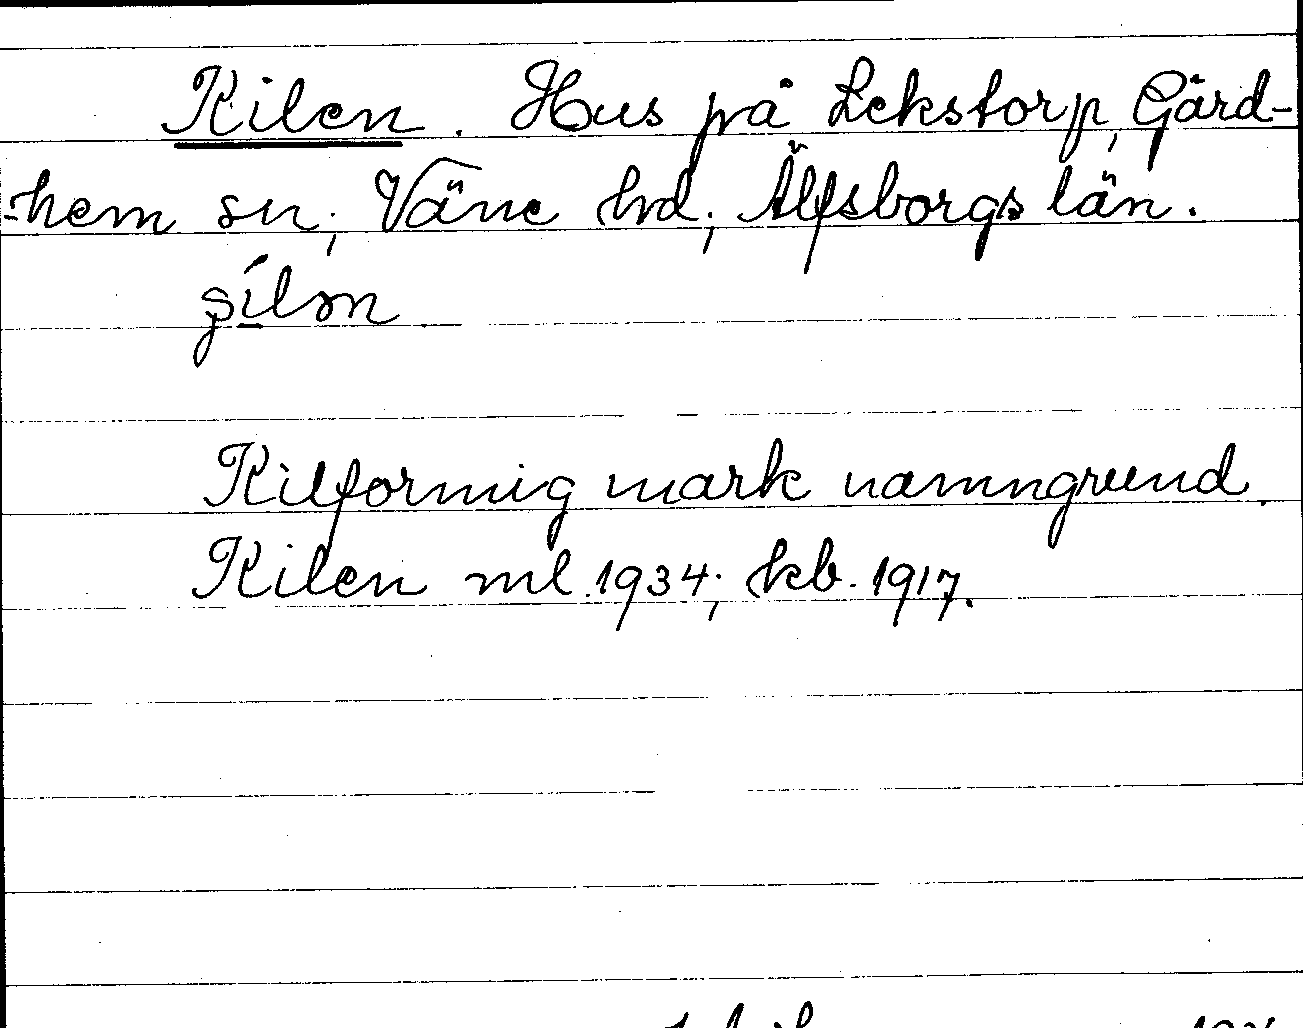 Kilen. Hus på Lekstorp, Gärd-
-hem sn; Väne hd; Älfsborgs län.
Kilformig mark namngrund.
Kilen ml. 1934; kb. 1917.